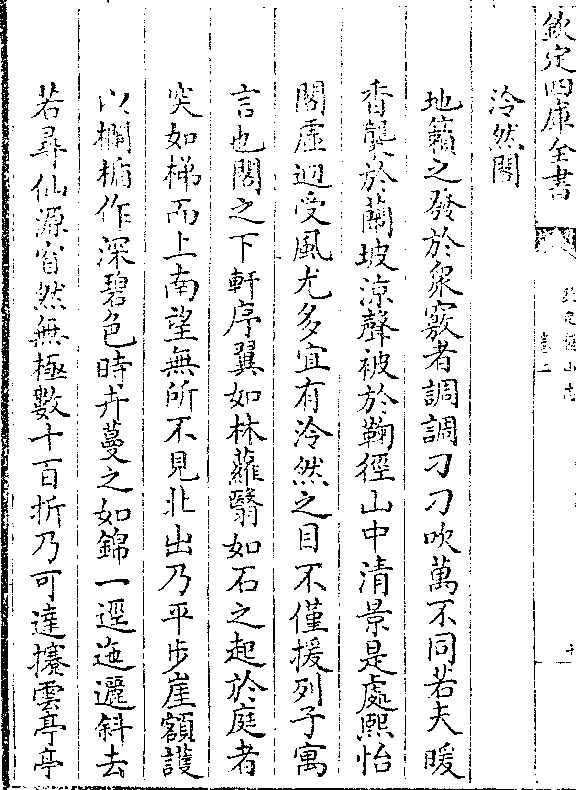 欽定四庫全書
卷二
泠然閣
地籟之發於衆竅者調調刁刁吹萬不同若夫暖
香襲於蘭坡涼聲被於鞠徑山中清景是處熙怡
閣虛迥受風尤多宜有泠然之目不僅援列子寓
言也閣之下軒序翼如林蘿翳如石之起於庭者
突如梯而上南望無所不見北出乃平步崖額護
以欄楯作深碧色時卉蔓之如錦一逕迤邐斜去
若尋仙源窅然無極數十百折乃可達攓雲亭亭